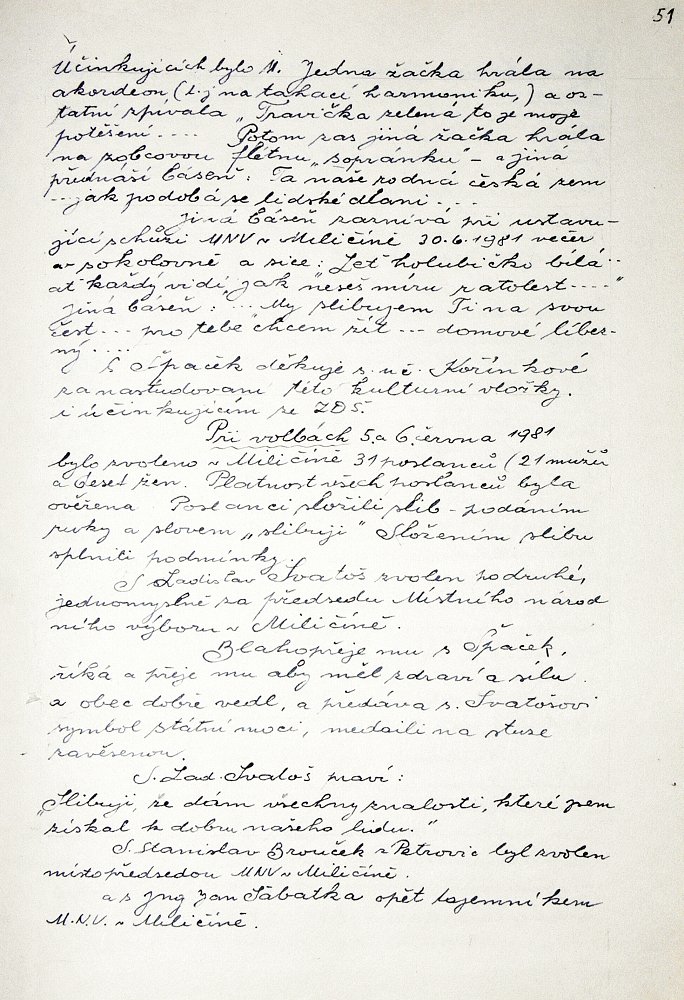 51
Účinkujících bylo 11. Jedna žačka hrála na
akordéon (t.j na tahací harmoniku,) a os-
tatní zpívala „Travička zelená to je moje
potěšení.... Potom zas jiná žačka hrála
na zobcovou flétnu „sopránku" – a jiná
přednáší báseň: Ta naše rodná česká zem
...jak podobá se lidské dlani...
jiná báseň zaznívá při ustavu-
jící schůzi MNV v Miličíně 30.6.1981 večer
v sokolovně a sice: Leť holubičko bílá..
ať každý vidí, jak "neseš míru ratolest....."
jiná báseň: ...My slibujem Ti na svou
čest... pro tebe chcem žít... domove líbez-
ný....
S Špaček děkuje s. uč. Kořínkové
za nastudovaní této kulturní vložky.
i účinkujícím ze ZDŠ.
Při volbách 5. a 6. června 1981
bylo zvoleno v Miličíně 31 poslanců (21 mužů
a deset žen. Platnost všech poslanců byla
ověřena Poslanci složili slib – podáním
ruky a slovem „slibuji" Složením slibu
splnili podmínky.
S Ladislav Svatoš zvolen podruhé,
jednomyslně za předsedu Místního národ
ního výboru v Miličíně.
Blahopřeje mu s Špaček,
říká a přeje mu aby měl zdraví a sílu
a obec dobře vedl, a předává s. Svatošovi
symbol státní moci, medaili na stuze
zavěsenou.
S. Lad. Svatoš praví:
„Slibuji, že dám všechny znalosti, které jsem
získal k dobru našeho lidu."
S. Stanislav Brouček z Petrovic byl zvolen
místopředsedou MNV v Miličíně.
a s Jng Jan Sábatka opět tajemníkem
M.N.V. v Miličíně.